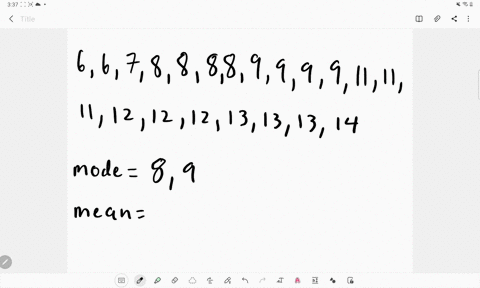 3:37
Title
6, 6, 7, 8, 8, 8, 8, 9, 9, 9, 9, 11, 11,
11, 12, 12, 12, 13, 13, 13, 14
mode = 8, 9
mean =